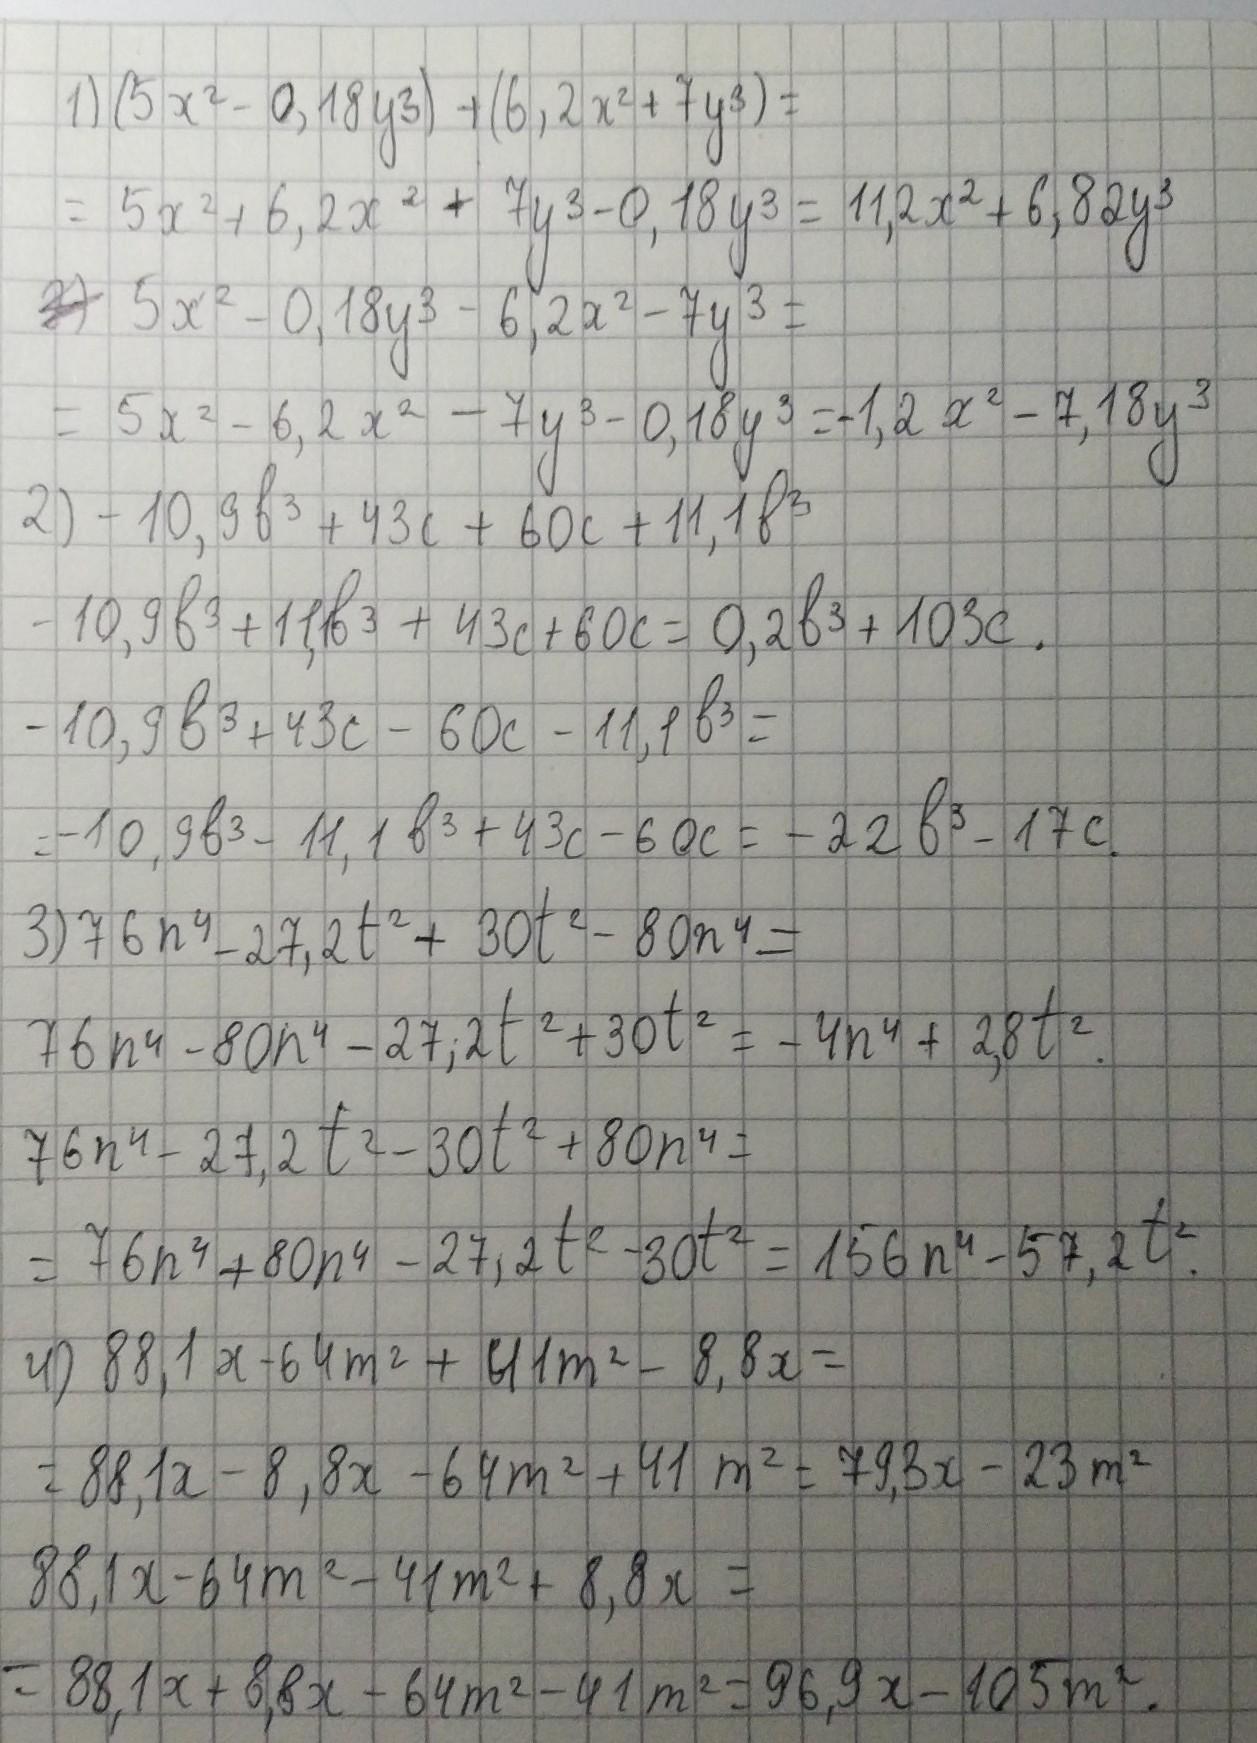 1) (5x² - 0,18y³) + (6,2x² + 7y³) =
= 5x² + 6,2x² + 7y³ - 0,18y³ = 11,2x² + 6,82y³
5x² - 0,18y³ - 6,2x² - 7y³ =
= 5x² - 6,2x² - 7y³ - 0,18y³ = -1,2x² - 7,18y³
2) - 10,9b³ + 43c + 60c + 11,1b³
- 10,9b³ + 11,1b³ + 43c + 60c = 0,2b³ + 103c.
- 10,9b³ + 43c - 60c - 11,1b³ =
= -10,9b³ - 11,1b³ + 43c - 60c = -22b³ - 17c.
3) 76n⁴ - 27,2t² + 30t² - 80n⁴ =
76n⁴ - 80n⁴ - 27,2t² + 30t² = -4n⁴ + 2,8t².
76n⁴ - 27,2t² - 30t² + 80n⁴ =
= 76n⁴ + 80n⁴ - 27,2t² - 30t² = 156n⁴ - 57,2t².
4) 88,1x - 64m² + 41m² - 8,8x =
= 88,1x - 8,8x - 64m² + 41m² = 79,3x - 23m²
88,1x - 64m² - 41m² + 8,8x =
= 88,1x + 8,8x - 64m² - 41m² = 96,9x - 105m².